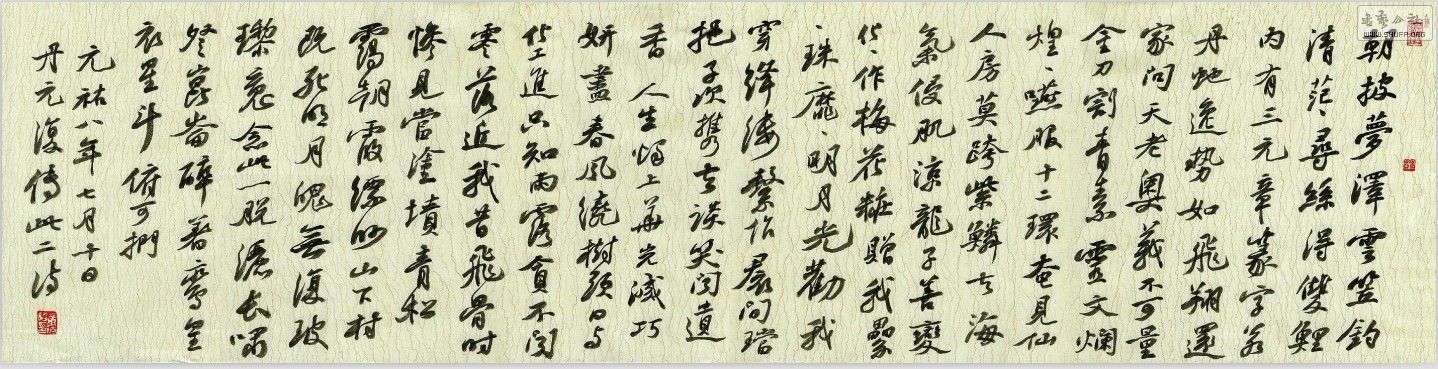 朝披夢澤雲笠釣
清茫丶尋絲得雙鯉
内有三元章篆字若
丹虵逸勢如飛翔還
家問天老奧義不可量
金刀割青素靈文爛
煌丶嚥服十二環奄見仙
人房莫跨紫鱗去海
氣侵肌涼龍子善變
化丶作梅花糚贈我纍
丶珠靡丶明月光勸我
穿絳縷繫作裙間璫
挹子次攜去談笑聞遺
香 人生燭上華光滅巧
妍盡春風繞樹頭日与
化工進只知雨露貪不聞
零落近我昔飛骨時
慘見當塗墳青松
靄朝霞縹緲山下村
既死明月魄無復玻
瓈魂念此一脫灑長嘯
登崑崙醉著鸞皇
衣星斗俯可捫
元祐八年七月十日
丹元復傳此二詩
WWW.SHUFA.ORG